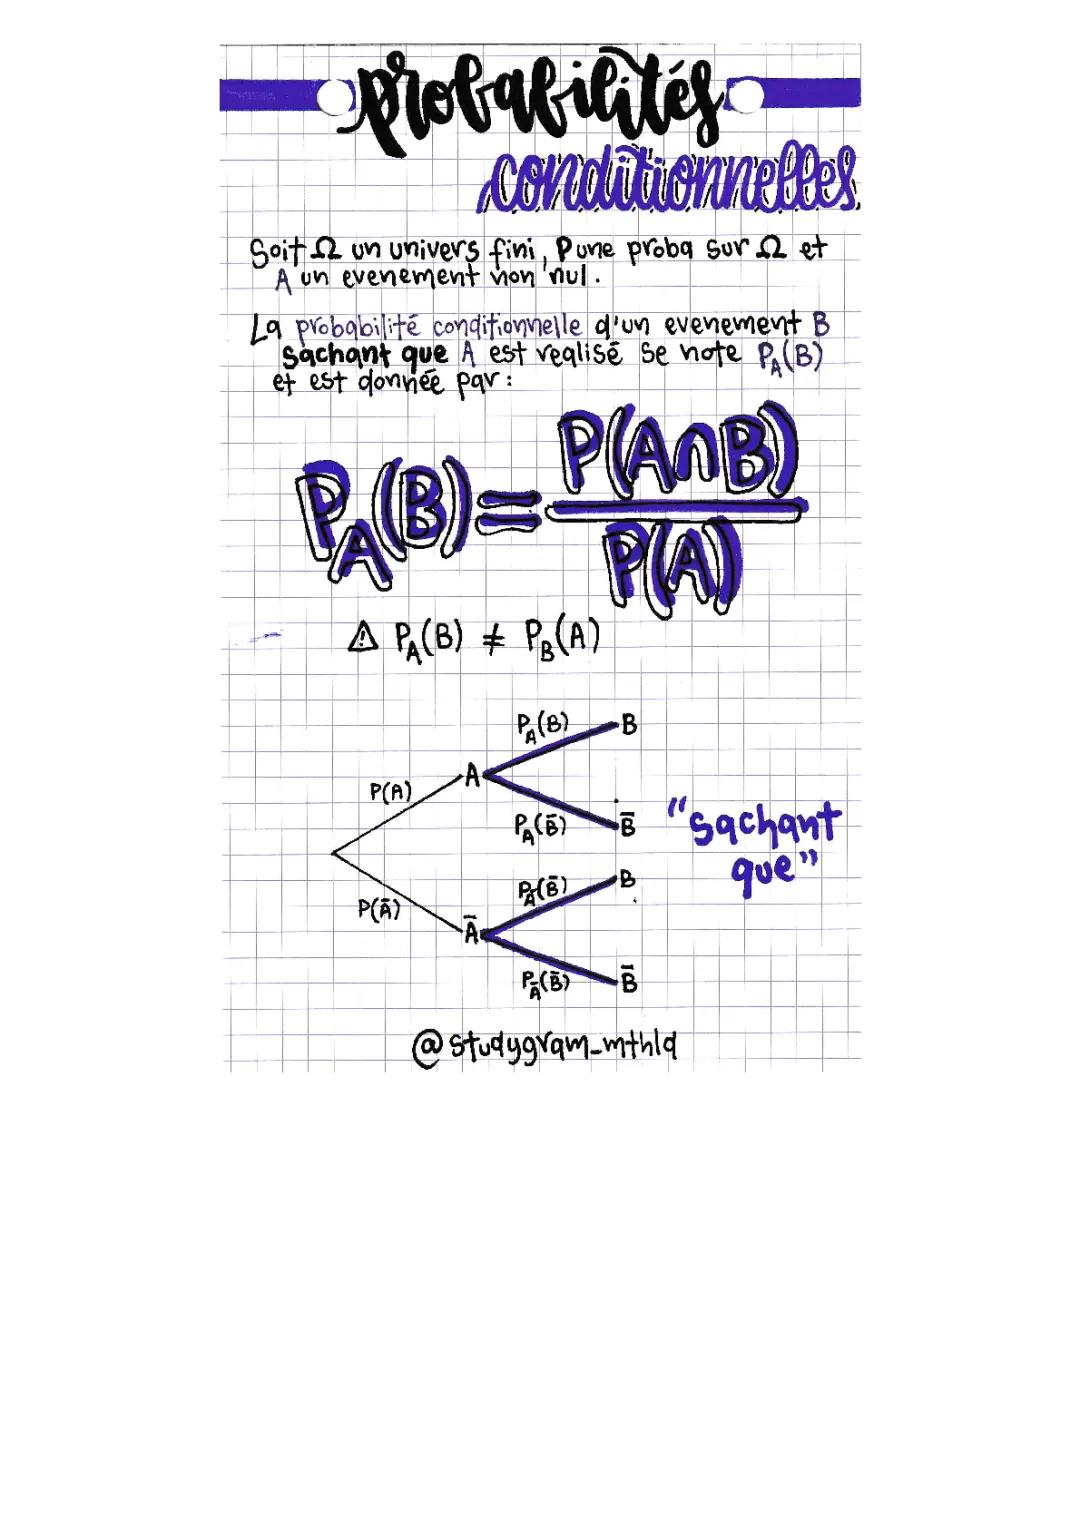 probabilités
conditionnelles
Soit Ω un univers fini, P une proba sur Ω et
A un evenement non nul.
La probabilité conditionnelle d'un evenement B
sachant que A est realisé se note P_A(B)
et est donnée par :
P_A(B) = P(A∩B) / P(A)
⚠ P_A(B) ≠ P_B(A)
P_A(B) B
P(A) A
P_A(B̄) B̄
"sachant
que"
P_Ā(B̄) B
P(Ā) Ā
P_Ā(B̄) B̄
@studygram_mthld